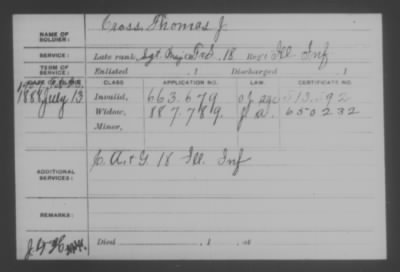 Cross, Thomas J.
NAME OF SOLDIER:
SERVICE: Late rank, Sgt. Maj. F&S, 18 Reg't Ill Inf
TERM OF SERVICE: Enlisted , 1 Discharged , 1
DATE OF FILING. CLASS. APPLICATION NO. LAW. CERTIFICATE NO.
1888 July 13 Invalid, 663.679 513.592
Widow, 887.789 650232
Minor,
C. A & G 18 Ill. Inf
ADDITIONAL SERVICES:
REMARKS:
Died , 1 , at